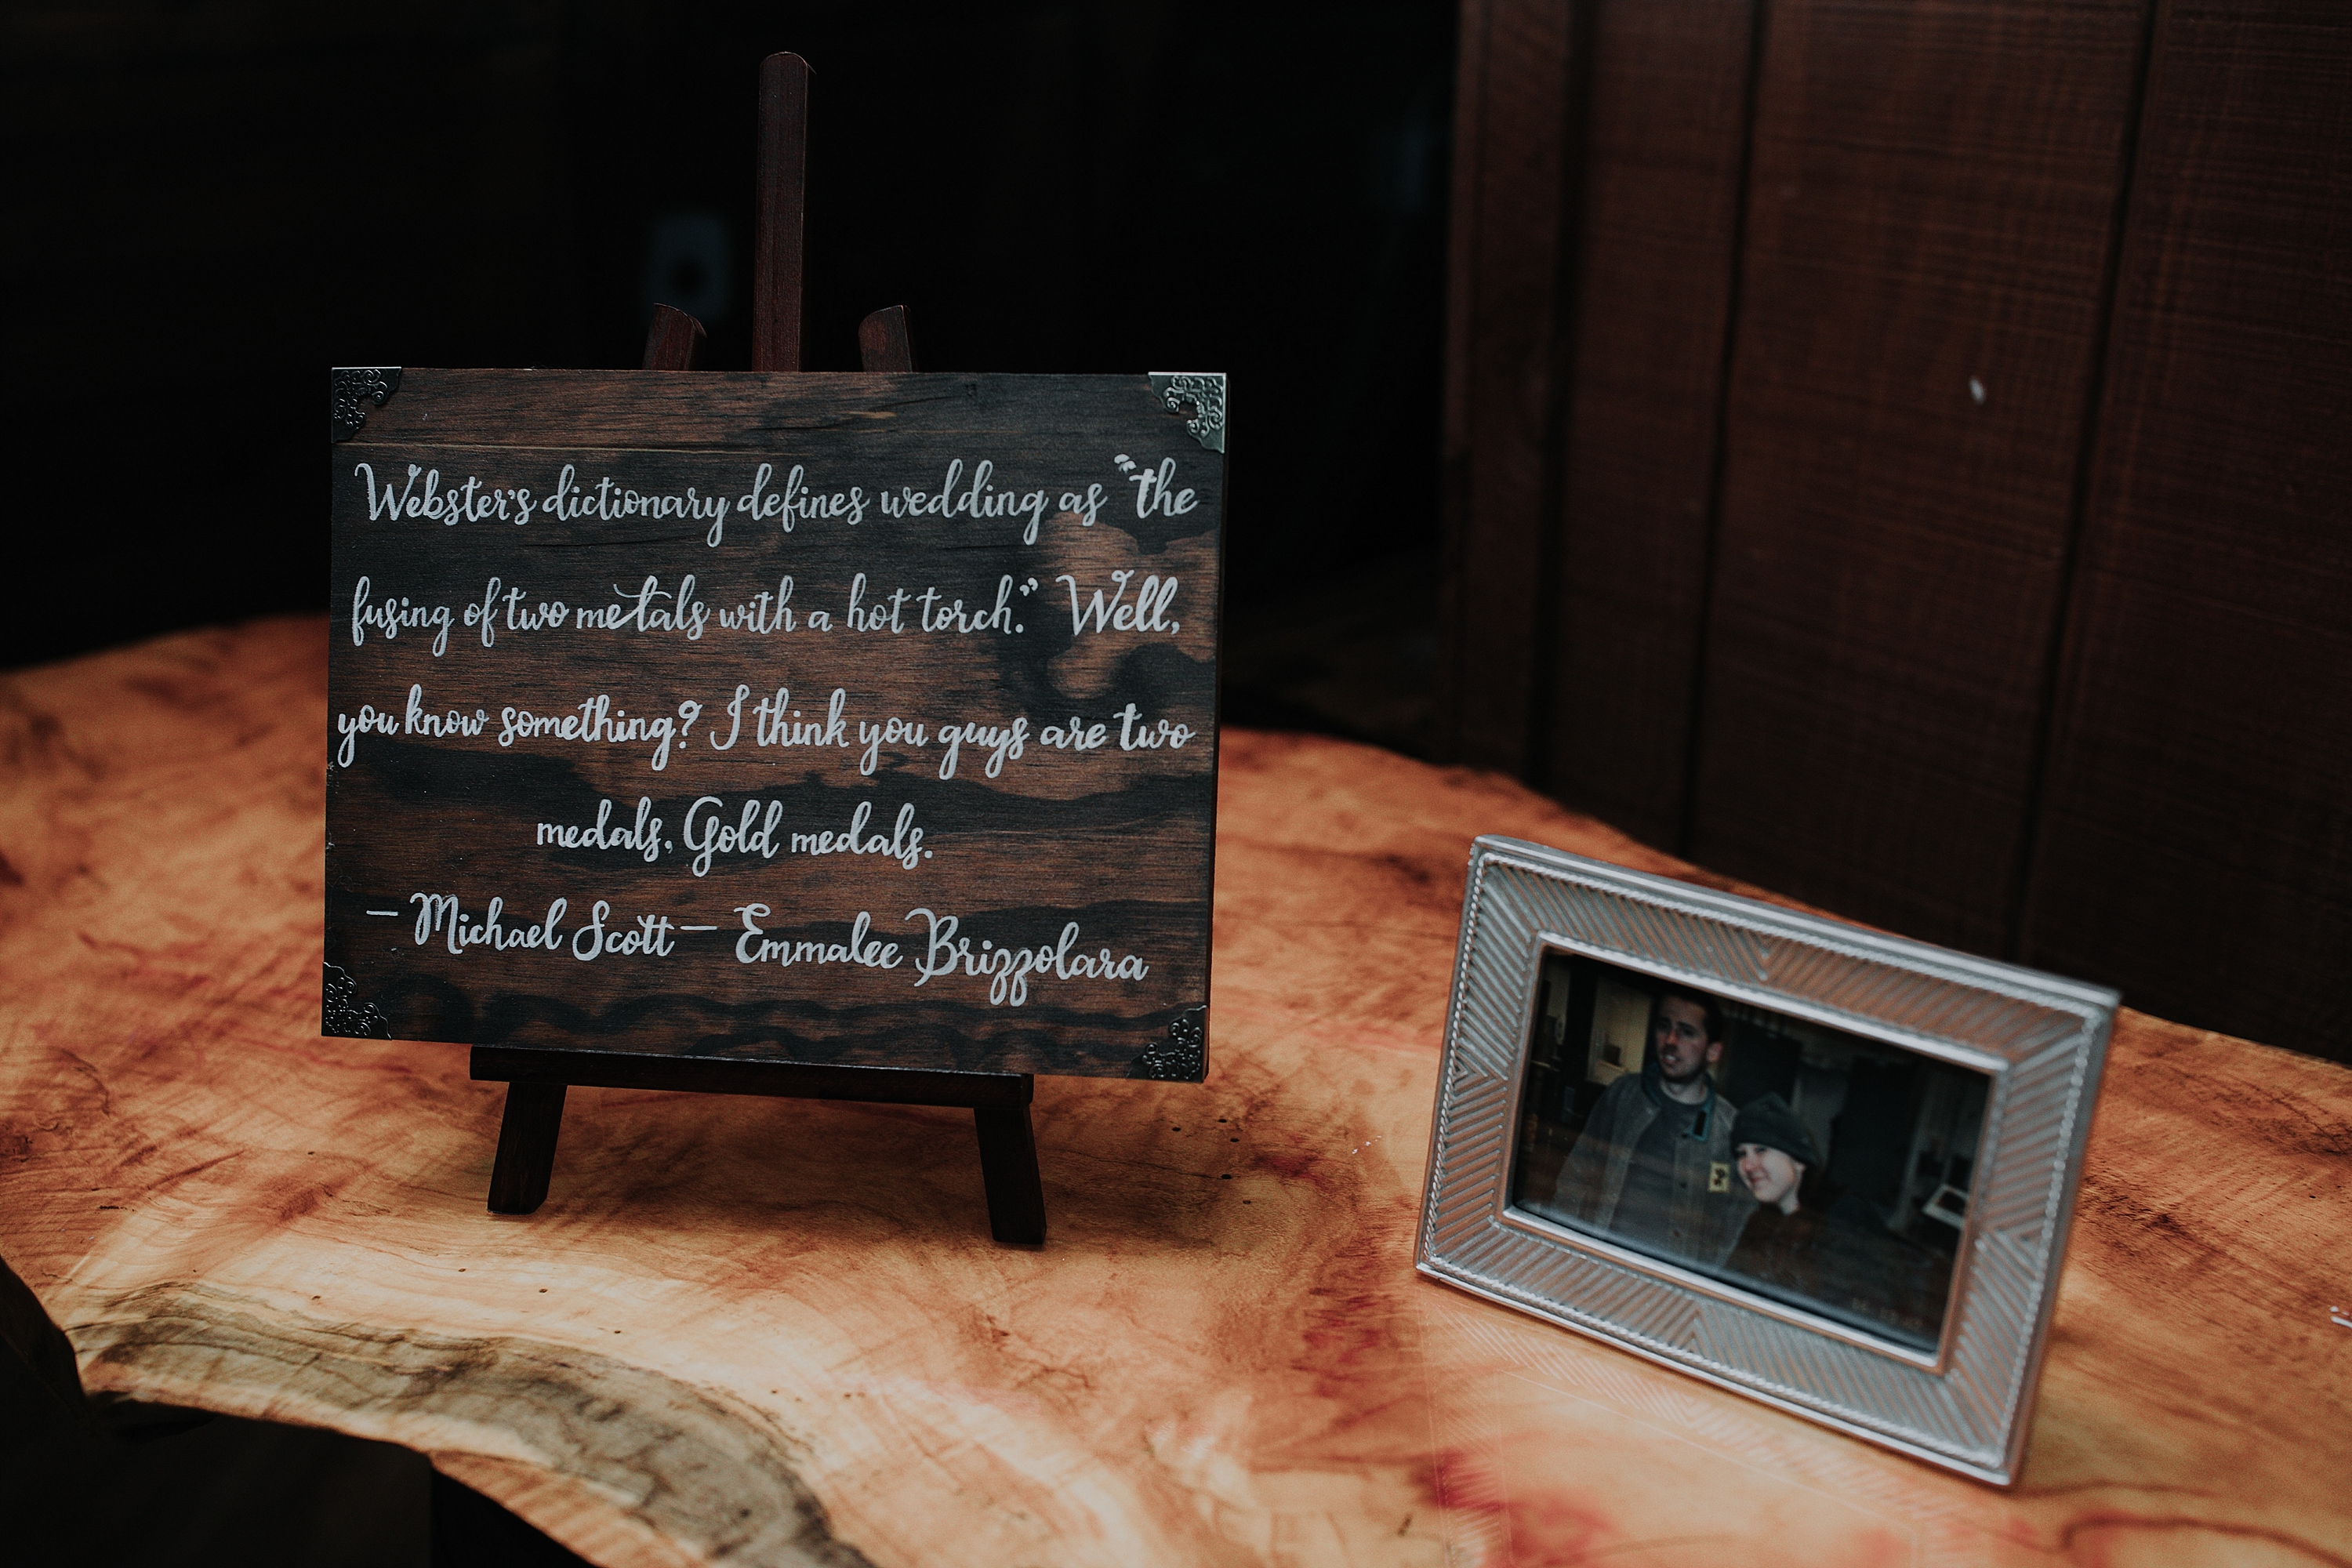 Webster's dictionary defines wedding as "the
fusing of two metals with a hot torch." Well,
you know something? I think you guys are two
medals. Gold medals.
– Michael Scott – Emmalee Brizzolara